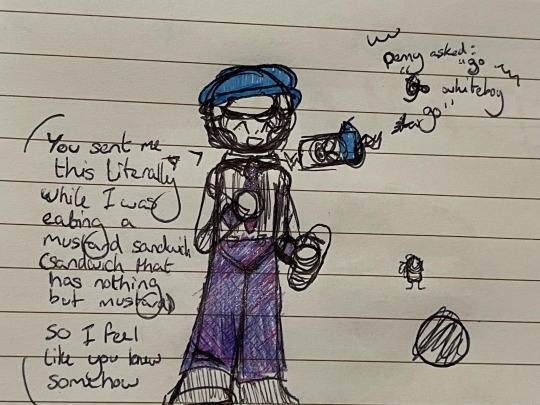 You sent me
this literally
while I was
eating a
mustard sandwich
(sandwich that
has nothing
but mustard)
So I feel
like you knew
somehow
penny asked:
"go
whiteboy
go"